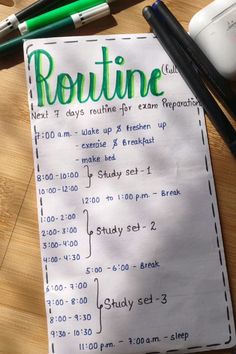 Routine (Full
Next 7 days routine for exam Preparation
7:00 a.m - Wake up & Freshen up
- exercise & Breakfast
- make bed
8:00 - 10:00
10:00 - 12:00
Study set - 1
12:00 to 1:00 p.m. - Break
1:00 - 2:00
2:00 - 3:00
3:00 - 4:00
4:00 - 5:00
Study set - 2
5:00 - 6:00 - Break
6:00 - 7:00
7:00 - 8:00
8:00 - 9:30
9:30 - 10:30
Study set - 3
11:00 p.m. - 7:00 a.m - sleep